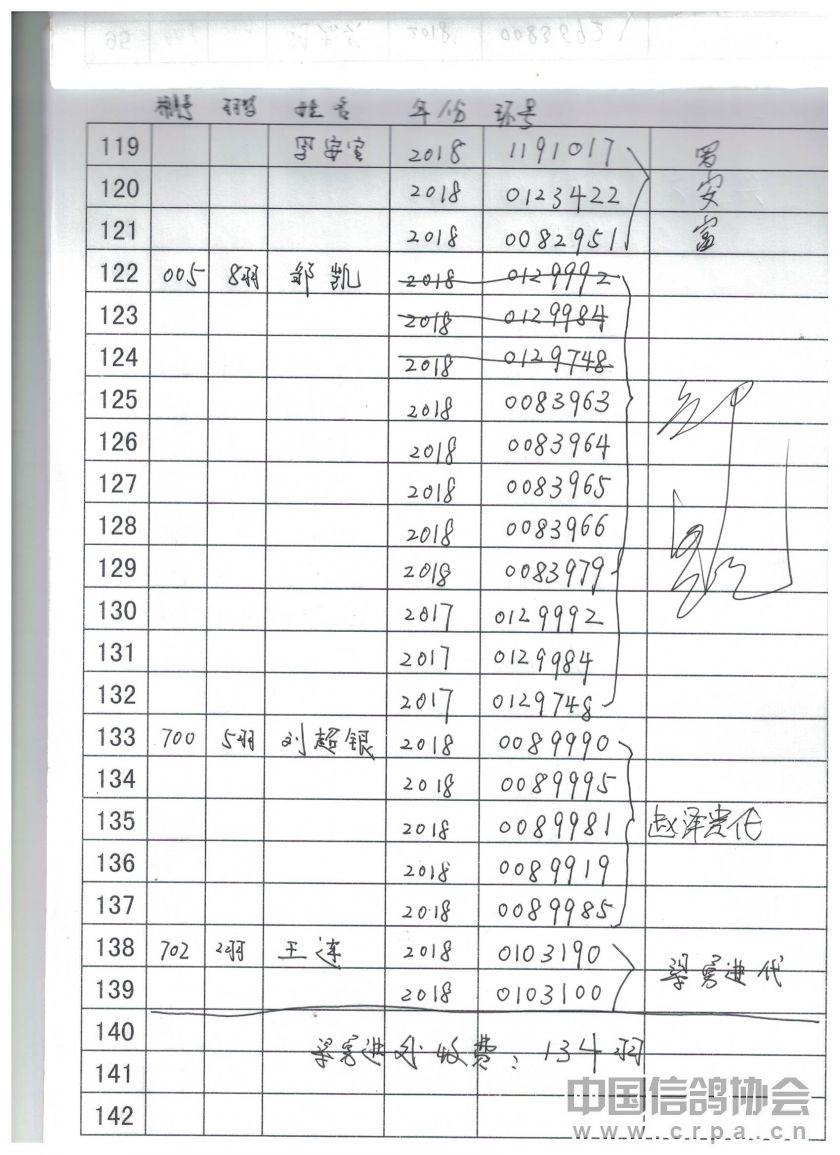 棚号 羽数 姓名 年份 环号
119 罗安富 2018 1191017 罗
120 2018 0123422 安
121 2018 0082951 富
122 005 8羽 邹凯 2018 0129992
123 2018 0129984
124 2018 0129748
125 2018 0083963 邹
126 2018 0083964
127 2018 0083965
128 2018 0083966 凯
129 2018 0083979
130 2017 0129992
131 2017 0129984
132 2017 0129748
133 700 5羽 刘超银 2018 0089990
134 2018 0089995
135 2018 0089981 赵泽贵代
136 2018 0089919
137 2018 0089985
138 702 2羽 王连 2018 0103190
139 2018 0103100 梁富进代
140 梁富进处收费：134羽
141
142
中国信鸽协会
www.crpa.cn